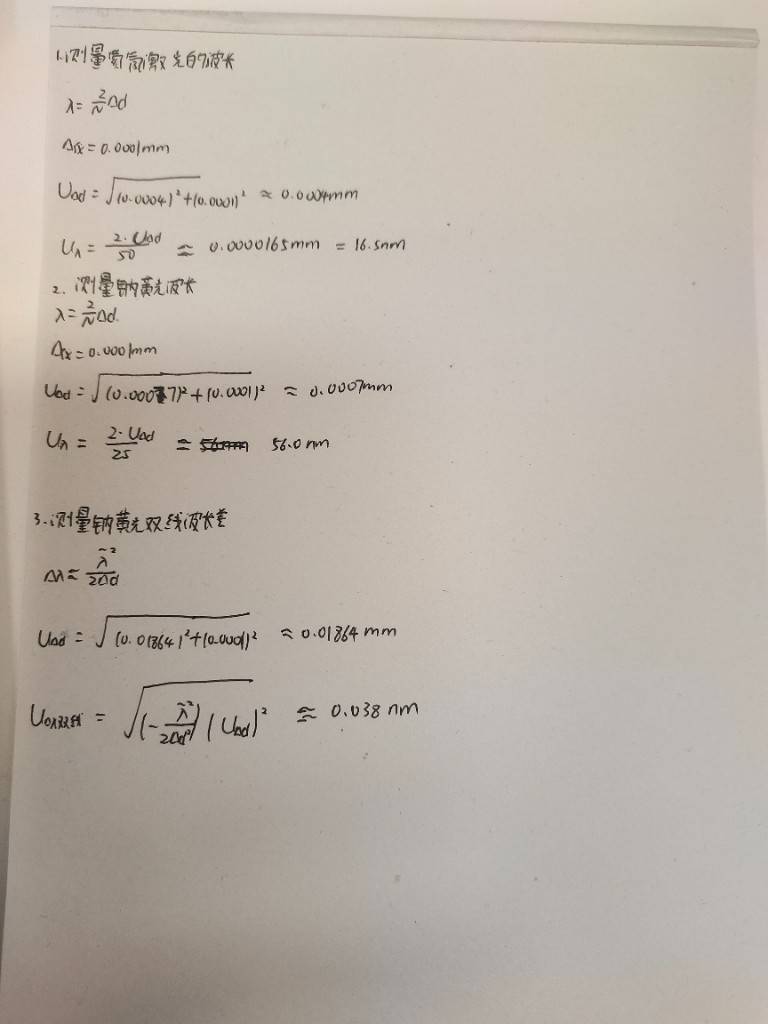 1.测量氦氖激光的波长
λ = 2/N Δd
Δ仪 = 0.0001mm
UΔd = √((0.0004)² + (0.0001)²) ≈ 0.0004mm
Uλ = 2·UΔd/50 ≈ 0.0000165mm = 16.5nm
2. 测量钠黄光波长
λ = 2/N Δd.
Δ仪 = 0.0001mm
UΔd = √((0.0007)² + (0.0001)²) ≈ 0.0007mm
Uλ = 2·UΔd/25 ≈ 56.0 nm
3.测量钠黄光双线波长差
Δλ ≈ λ̄²/2Δd
UΔd = √((0.01864)² + (0.0001)²) ≈ 0.01864 mm
UΔλ双线 = √((-λ̄²/2Δd²)(UΔd)²) ≈ 0.038 nm